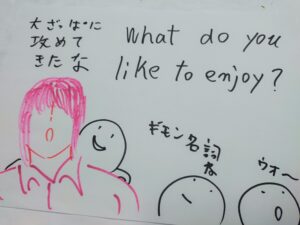 大ざっぱに
攻めて
きたな
What do you
like to enjoy?
ギモン名詞
な
ウオ〜